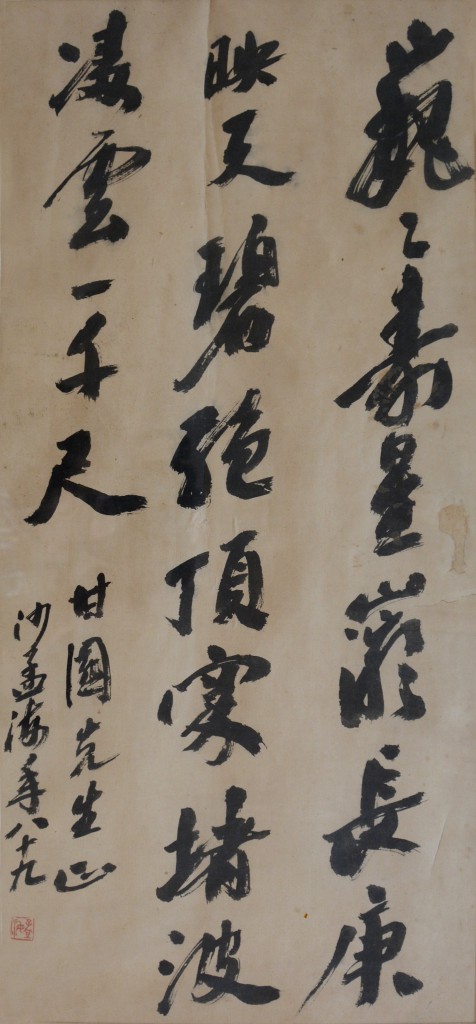 巍〻壽星巖長庚
映天碧絕頂窣堵波
凌雲一千尺
甘園先生正
沙孟海年八十九